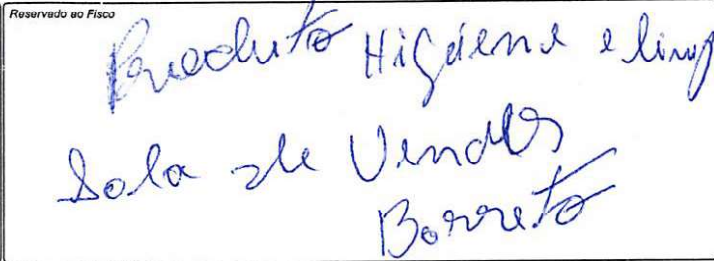 Reservado ao Fisco
Produto Higiene e limp
Sala de Vendas
Barreto